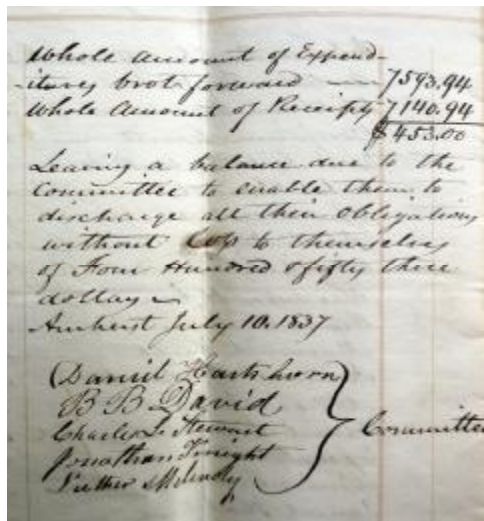 Whole amount of Expend-
-itures brot forward — 7593.94
Whole Amount of Receipts 7140.94
$453.00
Leaving a balance due to the
Committee to enable them to
discharge all their obligations
without loss to themselves
of Four Hundred & fifty three
dollars —
Amherst July 10. 1837
Daniel Hartshorn
B B David
Charles L. Stewart
Jonathan Knight
Luther Melendy
Committee